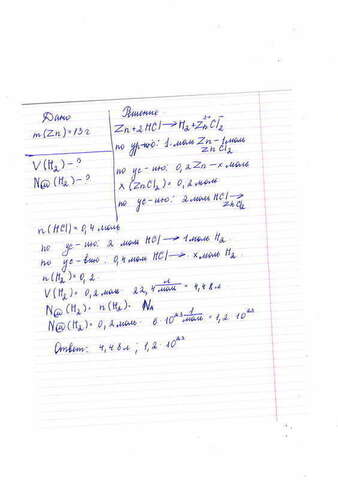 Дано
m(Zn)=13г
V(H₂)-?
N@(H₂)-?
Решение
Zn+2HCl→H₂+Zn²⁺Cl₂⁻
по ур-ю: 1 моль Zn-1моль
ZnCl₂
по ус-ию: 0,2Zn-x моль
x(ZnCl₂)=0,2моль
по ус-ию: 2 моль HCl→
ZnCl₂
n(HCl)=0,4моль
по ус-ию: 2 моль HCl→1моль H₂
по ус-вию: 0,4моль HCl→xмоль H₂
n(H₂)=0,2
V(H₂)=0,2моль·22,4 л/моль=4,48л
N@(H₂)=n(H₂)·Nₐ
N@(H₂)=0,2моль·6·10²³ 1/моль=1,2·10²³
Ответ: 4,48л; 1,2·10²³